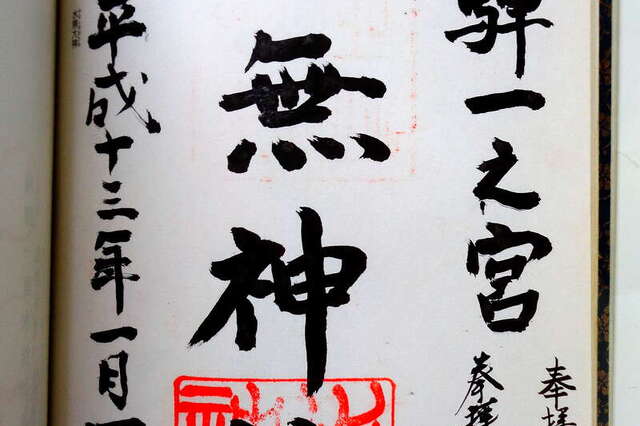 奉拝
騨一之宮
奉拝
無神
平成十三年一月